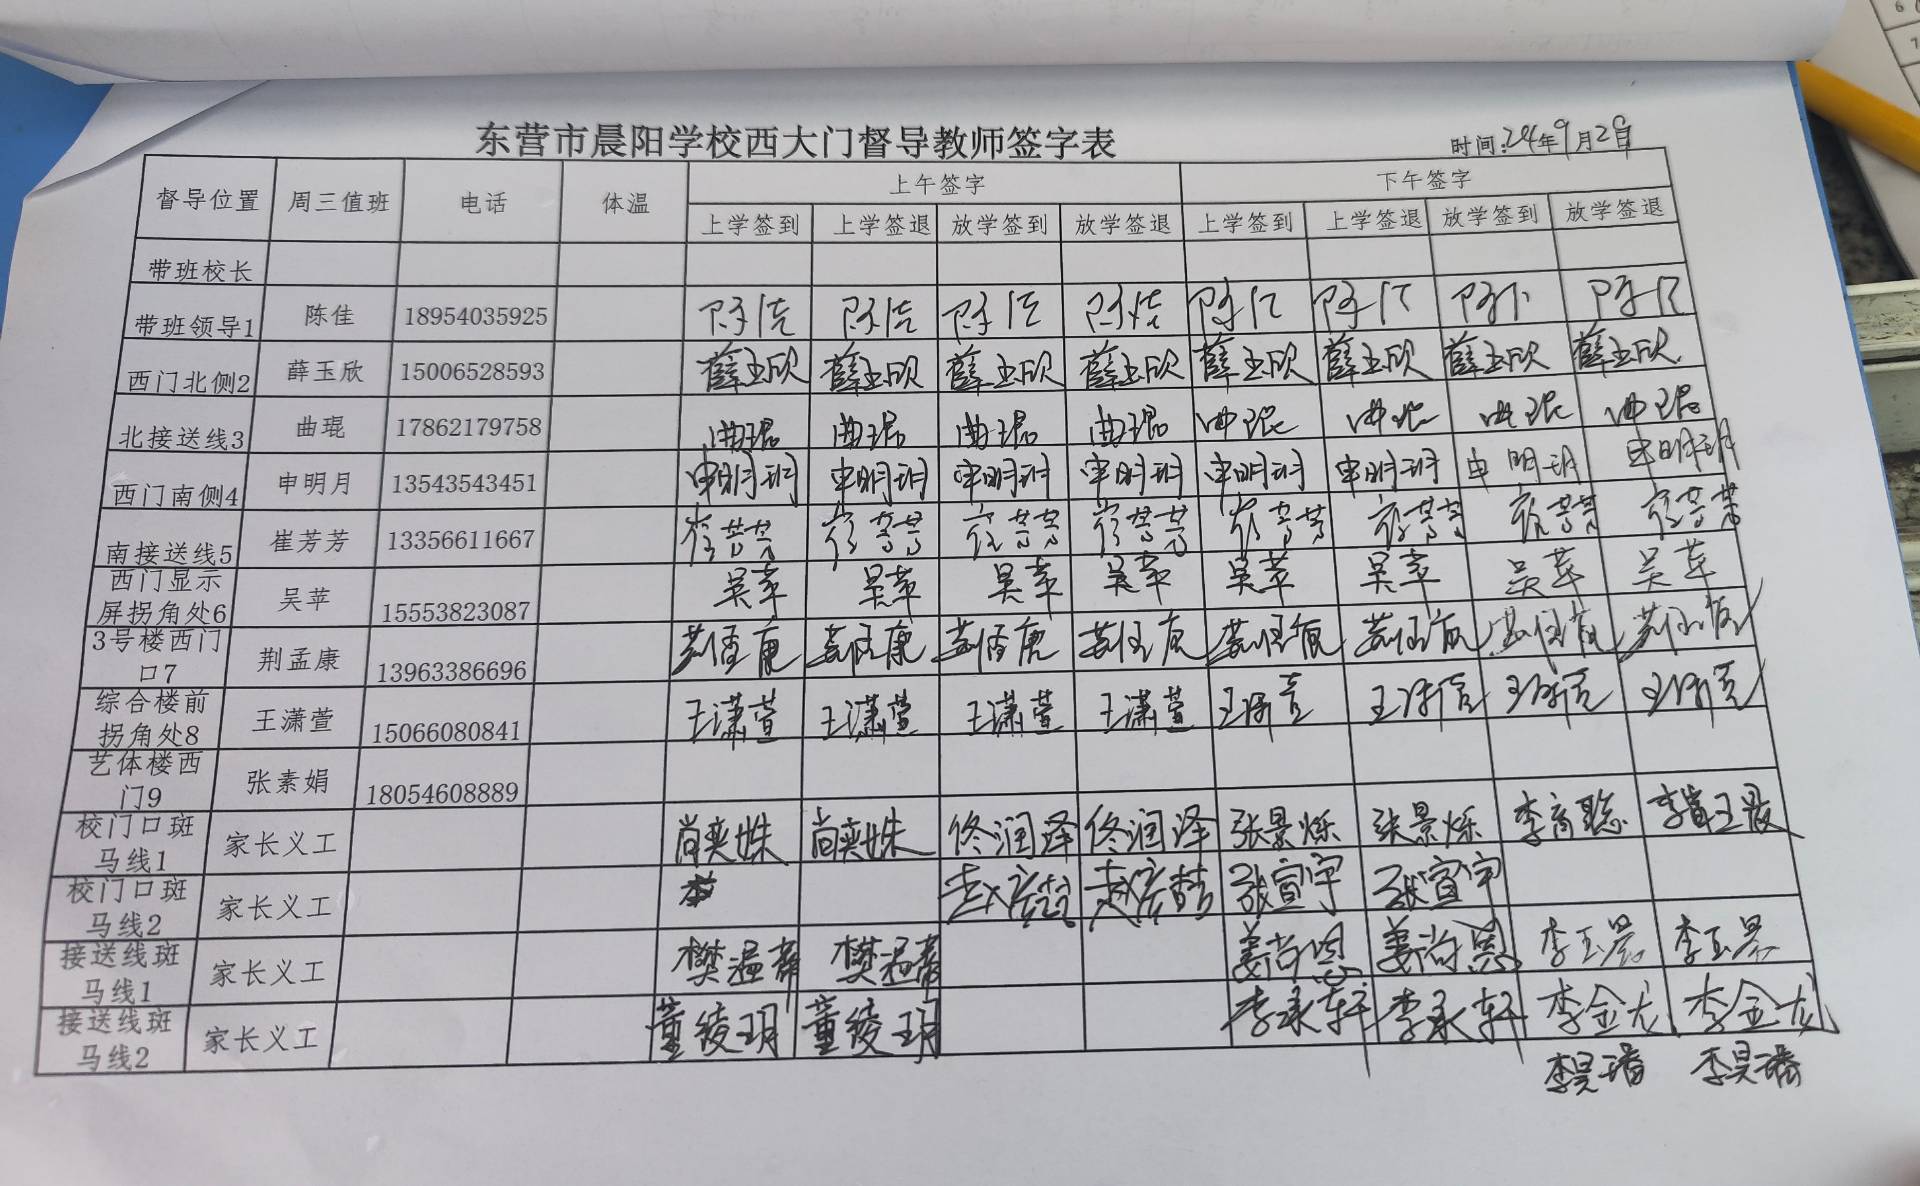 东营市晨阳学校西大门督导教师签字表
时间:24年9月2日
督导位置 周三值班 电话 体温 上午签字 下午签字
上学签到 上学签退 放学签到 放学签退 上学签到 上学签退 放学签到 放学签退
带班校长
带班领导1 陈佳 18954035925 陈佳 陈佳 陈佳 陈佳 陈佳 陈佳 陈佳 陈佳
西门北侧2 薛玉欣 15006528593 薛玉欣 薛玉欣 薛玉欣 薛玉欣 薛玉欣 薛玉欣 薛玉欣 薛玉欣
北接送线3 曲琨 17862179758 曲琨 曲琨 曲琨 曲琨 曲琨 曲琨 曲琨 曲琨
西门南侧4 申明月 13543543451 申明玥 申明玥 申明玥 申明玥 申明玥 申明玥 申明玥 申明玥
南接送线5 崔芳芳 13356611667 崔芳芳 崔芳芳 崔芳芳 崔芳芳 崔芳芳 崔芳芳 崔芳芳 崔芳芳
西门显示
屏拐角处6 吴苹 15553823087 吴苹 吴苹 吴苹 吴苹 吴苹 吴苹 吴苹 吴苹
3号楼西门
口7 荆孟康 13963386696
综合楼前
拐角处8 王潇萱 15066080841 王潇萱 王潇萱 王潇萱 王潇萱 王潇萱 王潇萱 王潇萱 王潇萱
艺体楼西
门9 张素娟 18054608889
校门口班
马线1 家长义工 尚奕姝 尚奕姝 佟润泽 佟润泽 张景烁 张景烁 李育聪
校门口班
马线2 家长义工 张宣宇 张宣宇
接送线班
马线1 家长义工 姜尚恩 姜尚恩 李玉晨 李玉晨
接送线班
马线2 家长义工 董绫玥 董绫玥 李承轩 李承轩 李金龙 李金龙
李昊璠 李昊璠